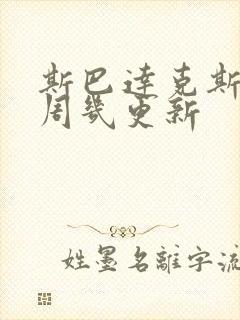 斯巴達克斯
周幾更新
姓墨名離字流